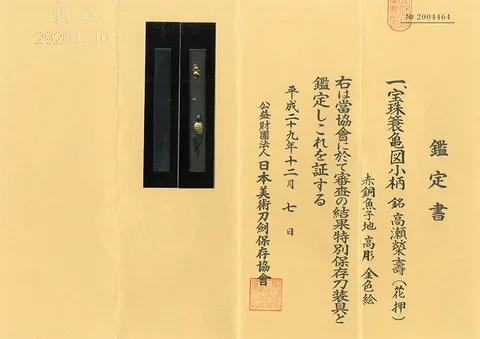 № 2004464
鑑定書
一、宝珠簑亀図小柄 銘 高瀬榮壽（花押）
赤銅魚子地 高彫 金色絵
右は當協會に於て審査の結果特別保存刀装具と
鑑定しこれを証する
平成二十九年十二月 七 日
公益財團法人 日本美術刀剣保存協會